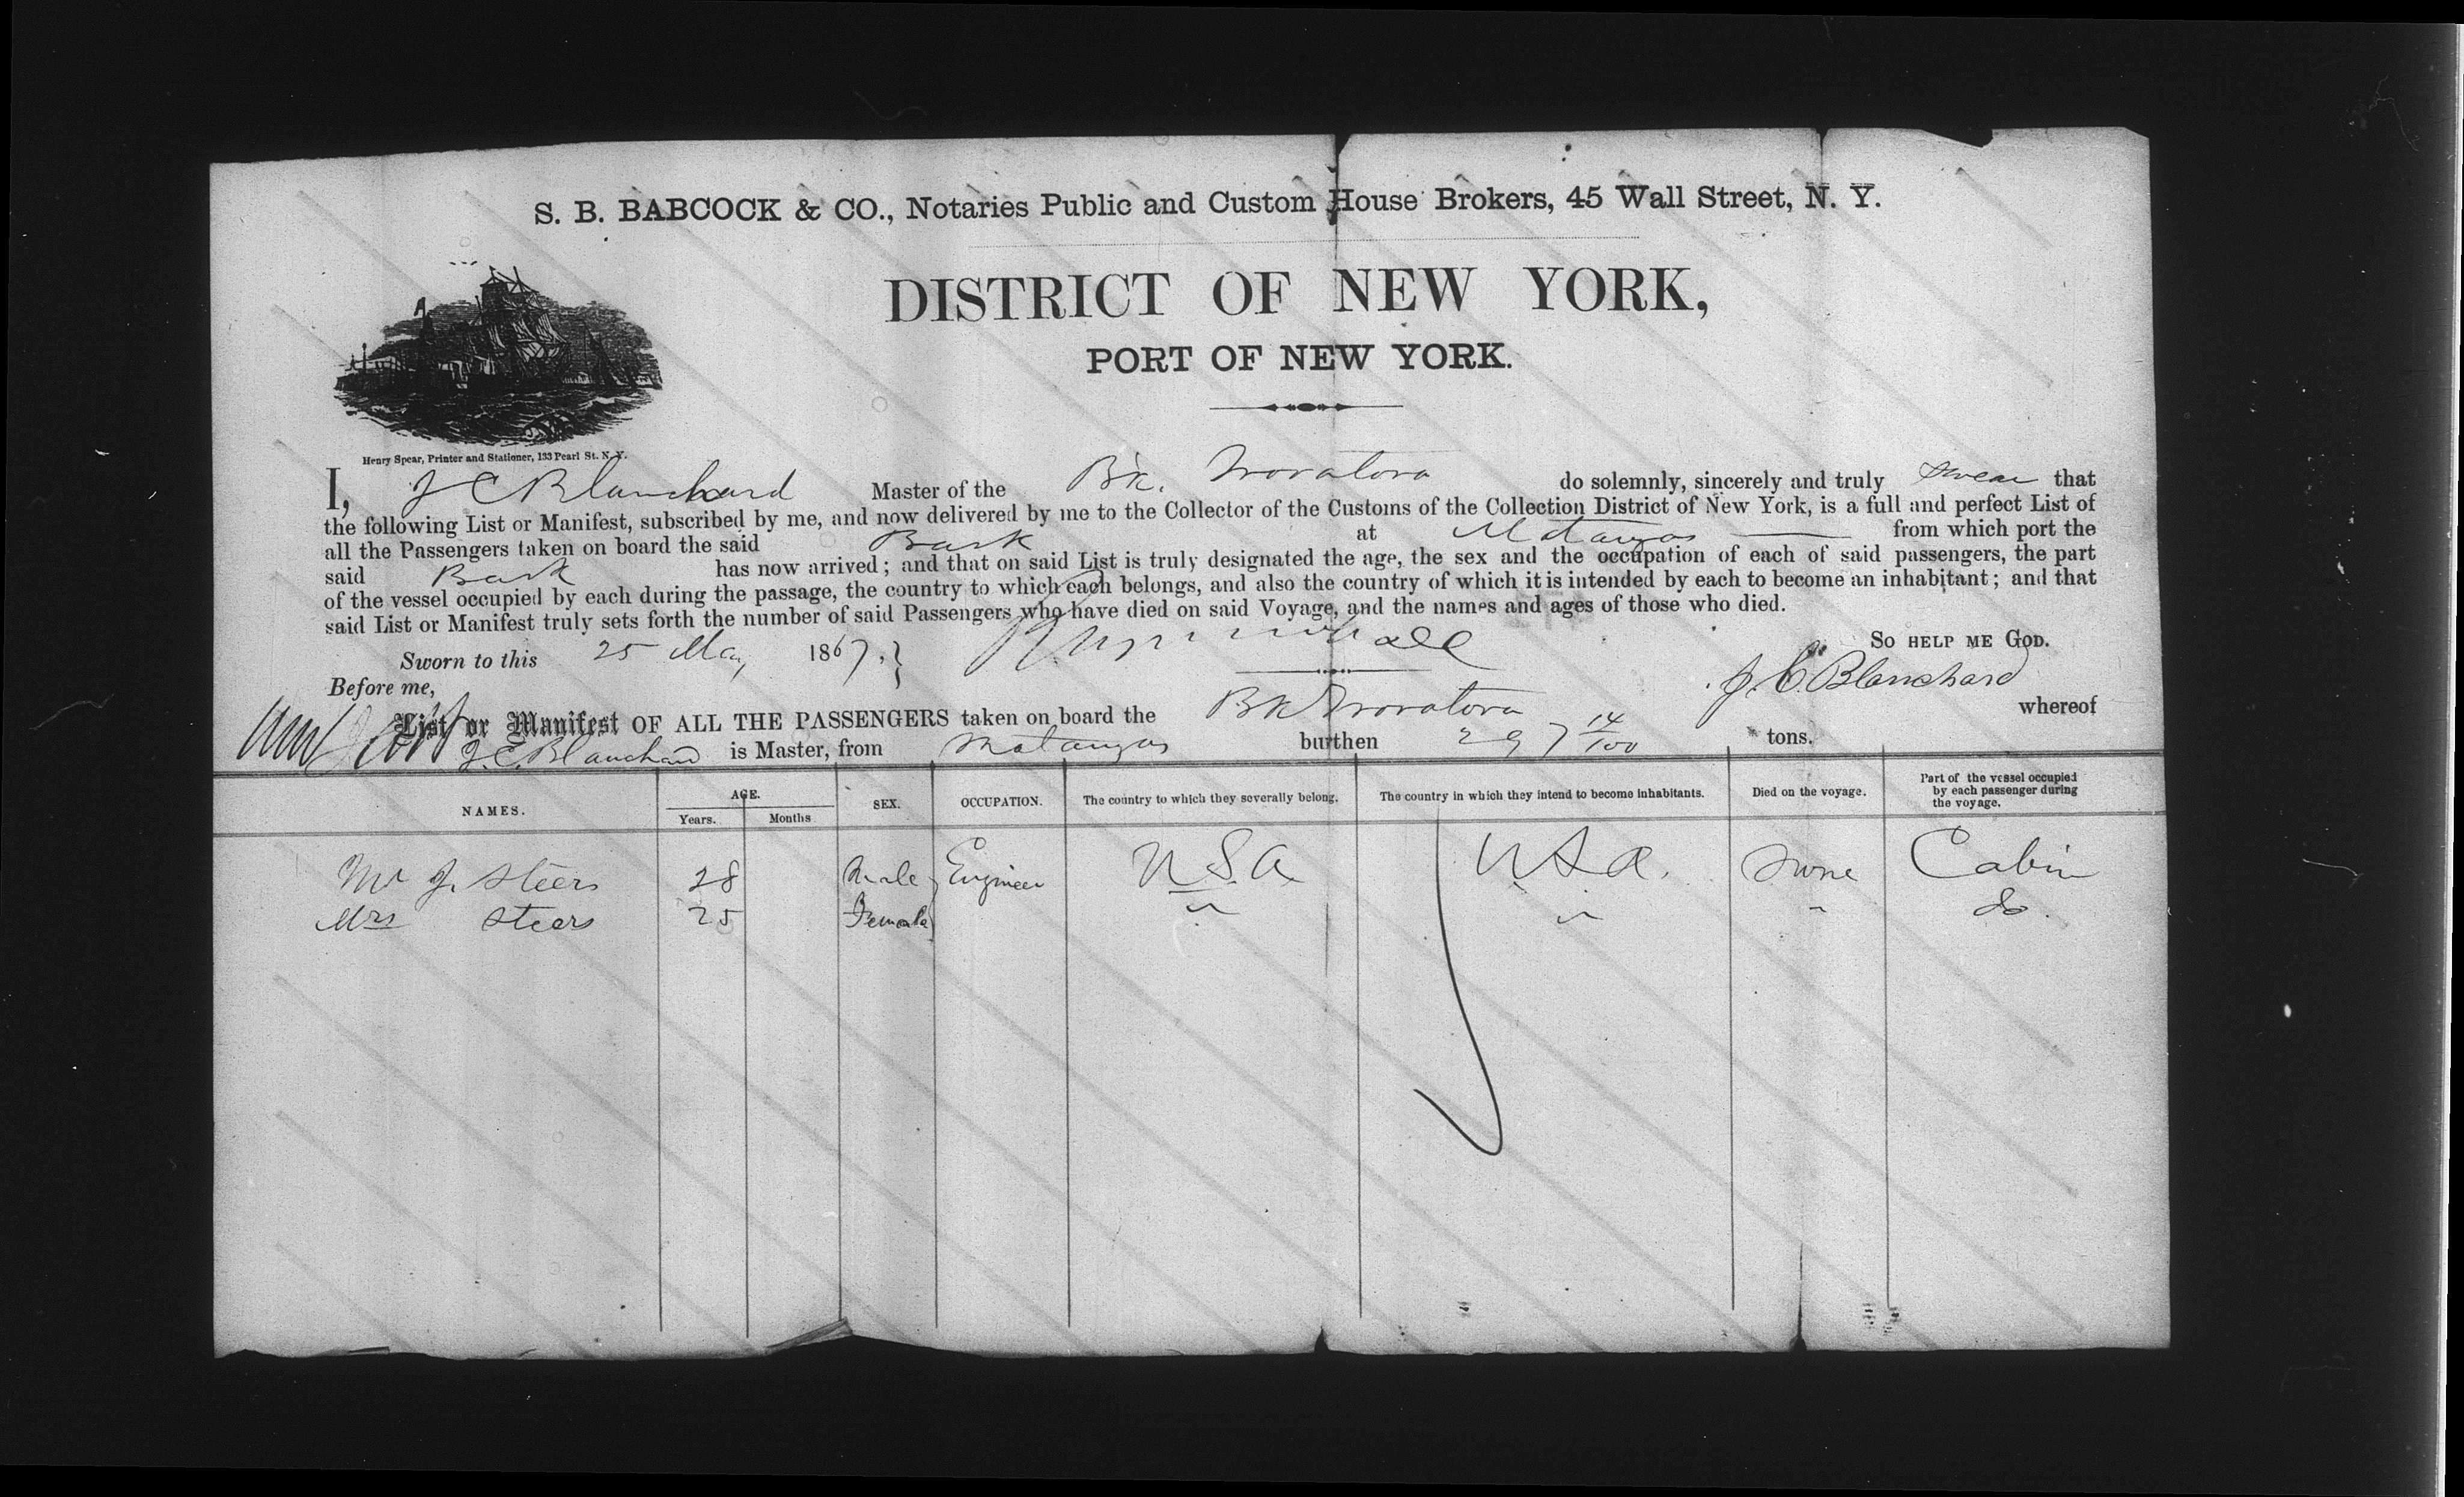 S. B. BABCOCK & CO., Notaries Public and Custom House Brokers, 45 Wall Street, N. Y.
DISTRICT OF NEW YORK,
PORT OF NEW YORK.
Henry Spear, Printer and Stationer, 133 Pearl St. N. Y.
I, J C Blanchard Master of the Bk. Trovatora do solemnly, sincerely and truly swear that
the following List or Manifest, subscribed by me, and now delivered by me to the Collector of the Customs of the Collection District of New York, is a full and perfect List of
all the Passengers taken on board the said Bark at Matanzas from which port the
said Bark has now arrived; and that on said List is truly designated the age, the sex and the occupation of each of said passengers, the part
of the vessel occupied by each during the passage, the country to which each belongs, and also the country of which it is intended by each to become an inhabitant; and that
said List or Manifest truly sets forth the number of said Passengers who have died on said Voyage, and the names and ages of those who died.
So help me God.
Sworn to this 25 May 1867.
Before me,
J. C. Blanchard
List or Manifest OF ALL THE PASSENGERS taken on board the Bk Trovatora whereof
J. C. Blanchard is Master, from Matanzas burthen 297 14/100 tons.
NAMES. AGE. Years. Months SEX. OCCUPATION. The country to which they severally belong. The country in which they intend to become inhabitants. Died on the voyage. Part of the vessel occupied by each passenger during the voyage.
Mr J. Steers 28 Male Engineer USA USA. None Cabin
Mrs Steers 25 Female " " " do.